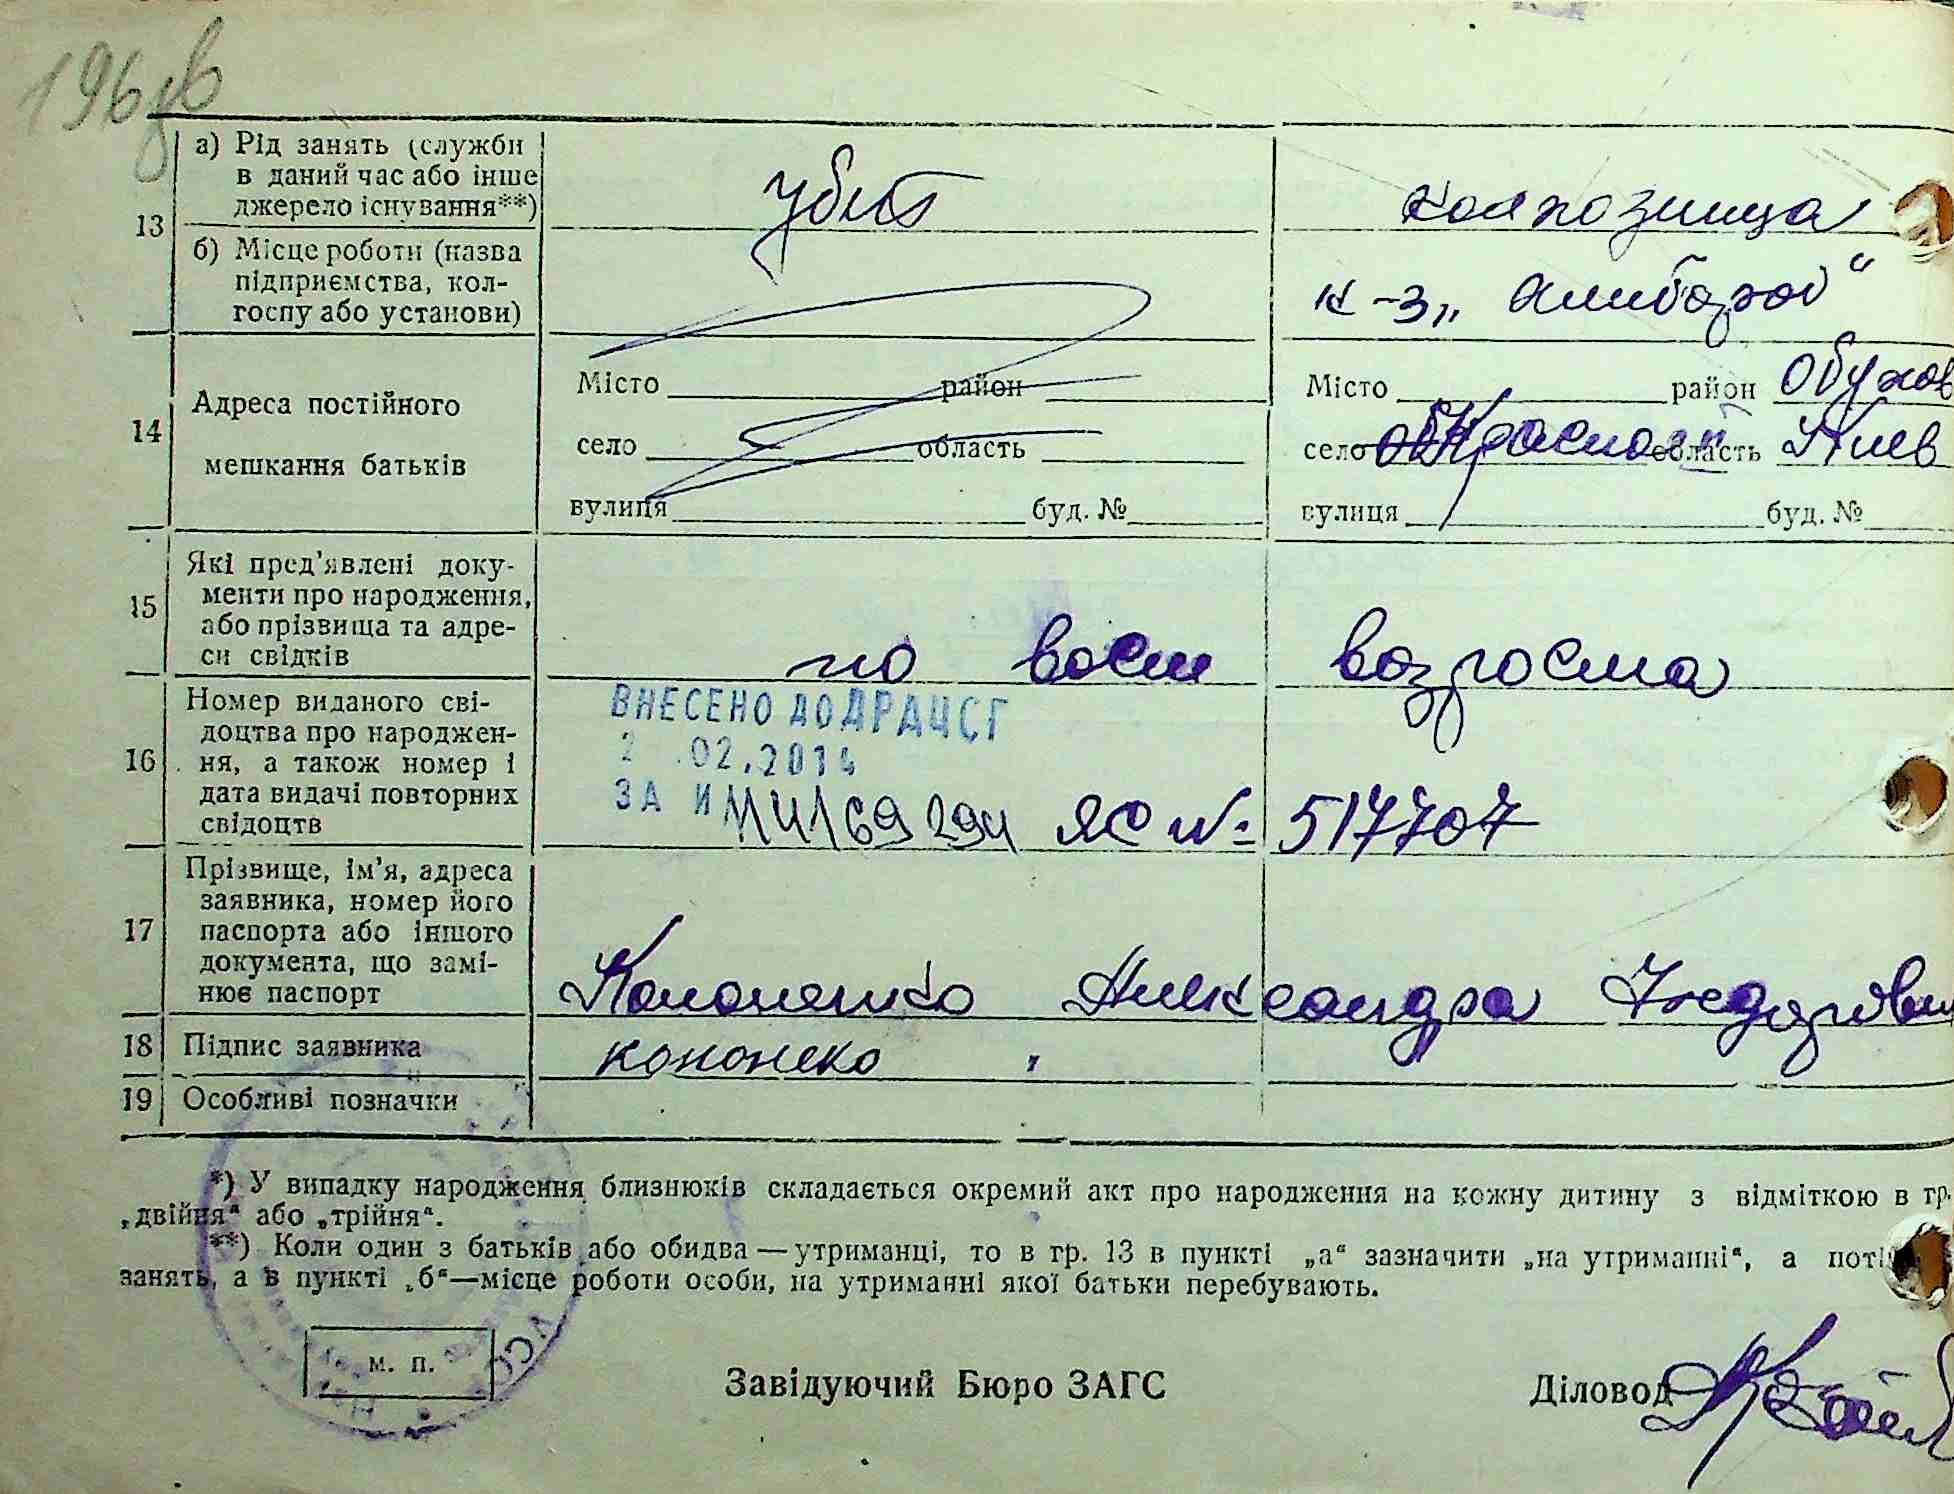 196зв
13
а) Рід занять (служби
в даний час або інше
джерело існування**)
убит
колхозница
б) Місце роботи (назва
підприємства, кол-
госпу або установи)
к-з „
14
Адреса постійного
мешкання батьків
Місто район
село область
вулиця буд. №
Місто район Обухов
село область Киев
вулиця буд. №
15
Які пред’явлені доку-
менти про народження,
або прізвища та адре-
си свідків
по возраста
16
Номер виданого сві-
доцтва про народжен-
ня, а також номер і
дата видачі повторних
свідоцтв
ВНЕСЕНО ДО ДРАЦСГ
2 .02.2014
ЗА И
ЯС № 517707
17
Прізвище, ім’я, адреса
заявника, номер його
паспорта або іншого
документа, що замі-
нює паспорт
Кононенко Александра
18
Підпис заявника
кононеко
19
Особливі позначки
*) У випадку народження близнюків складається окремий акт про народження на кожну дитину з відміткою в гр.
„двійня“ або „трійня“.
**) Коли один з батьків або обидва — утриманці, то в гр. 13 в пункті „а“ зазначити „на утриманні“, а поті
занять, а в пункті „б“—місце роботи особи, на утриманні якої батьки перебувають.
м. п.
Завідуючий Бюро ЗАГС
Діловод